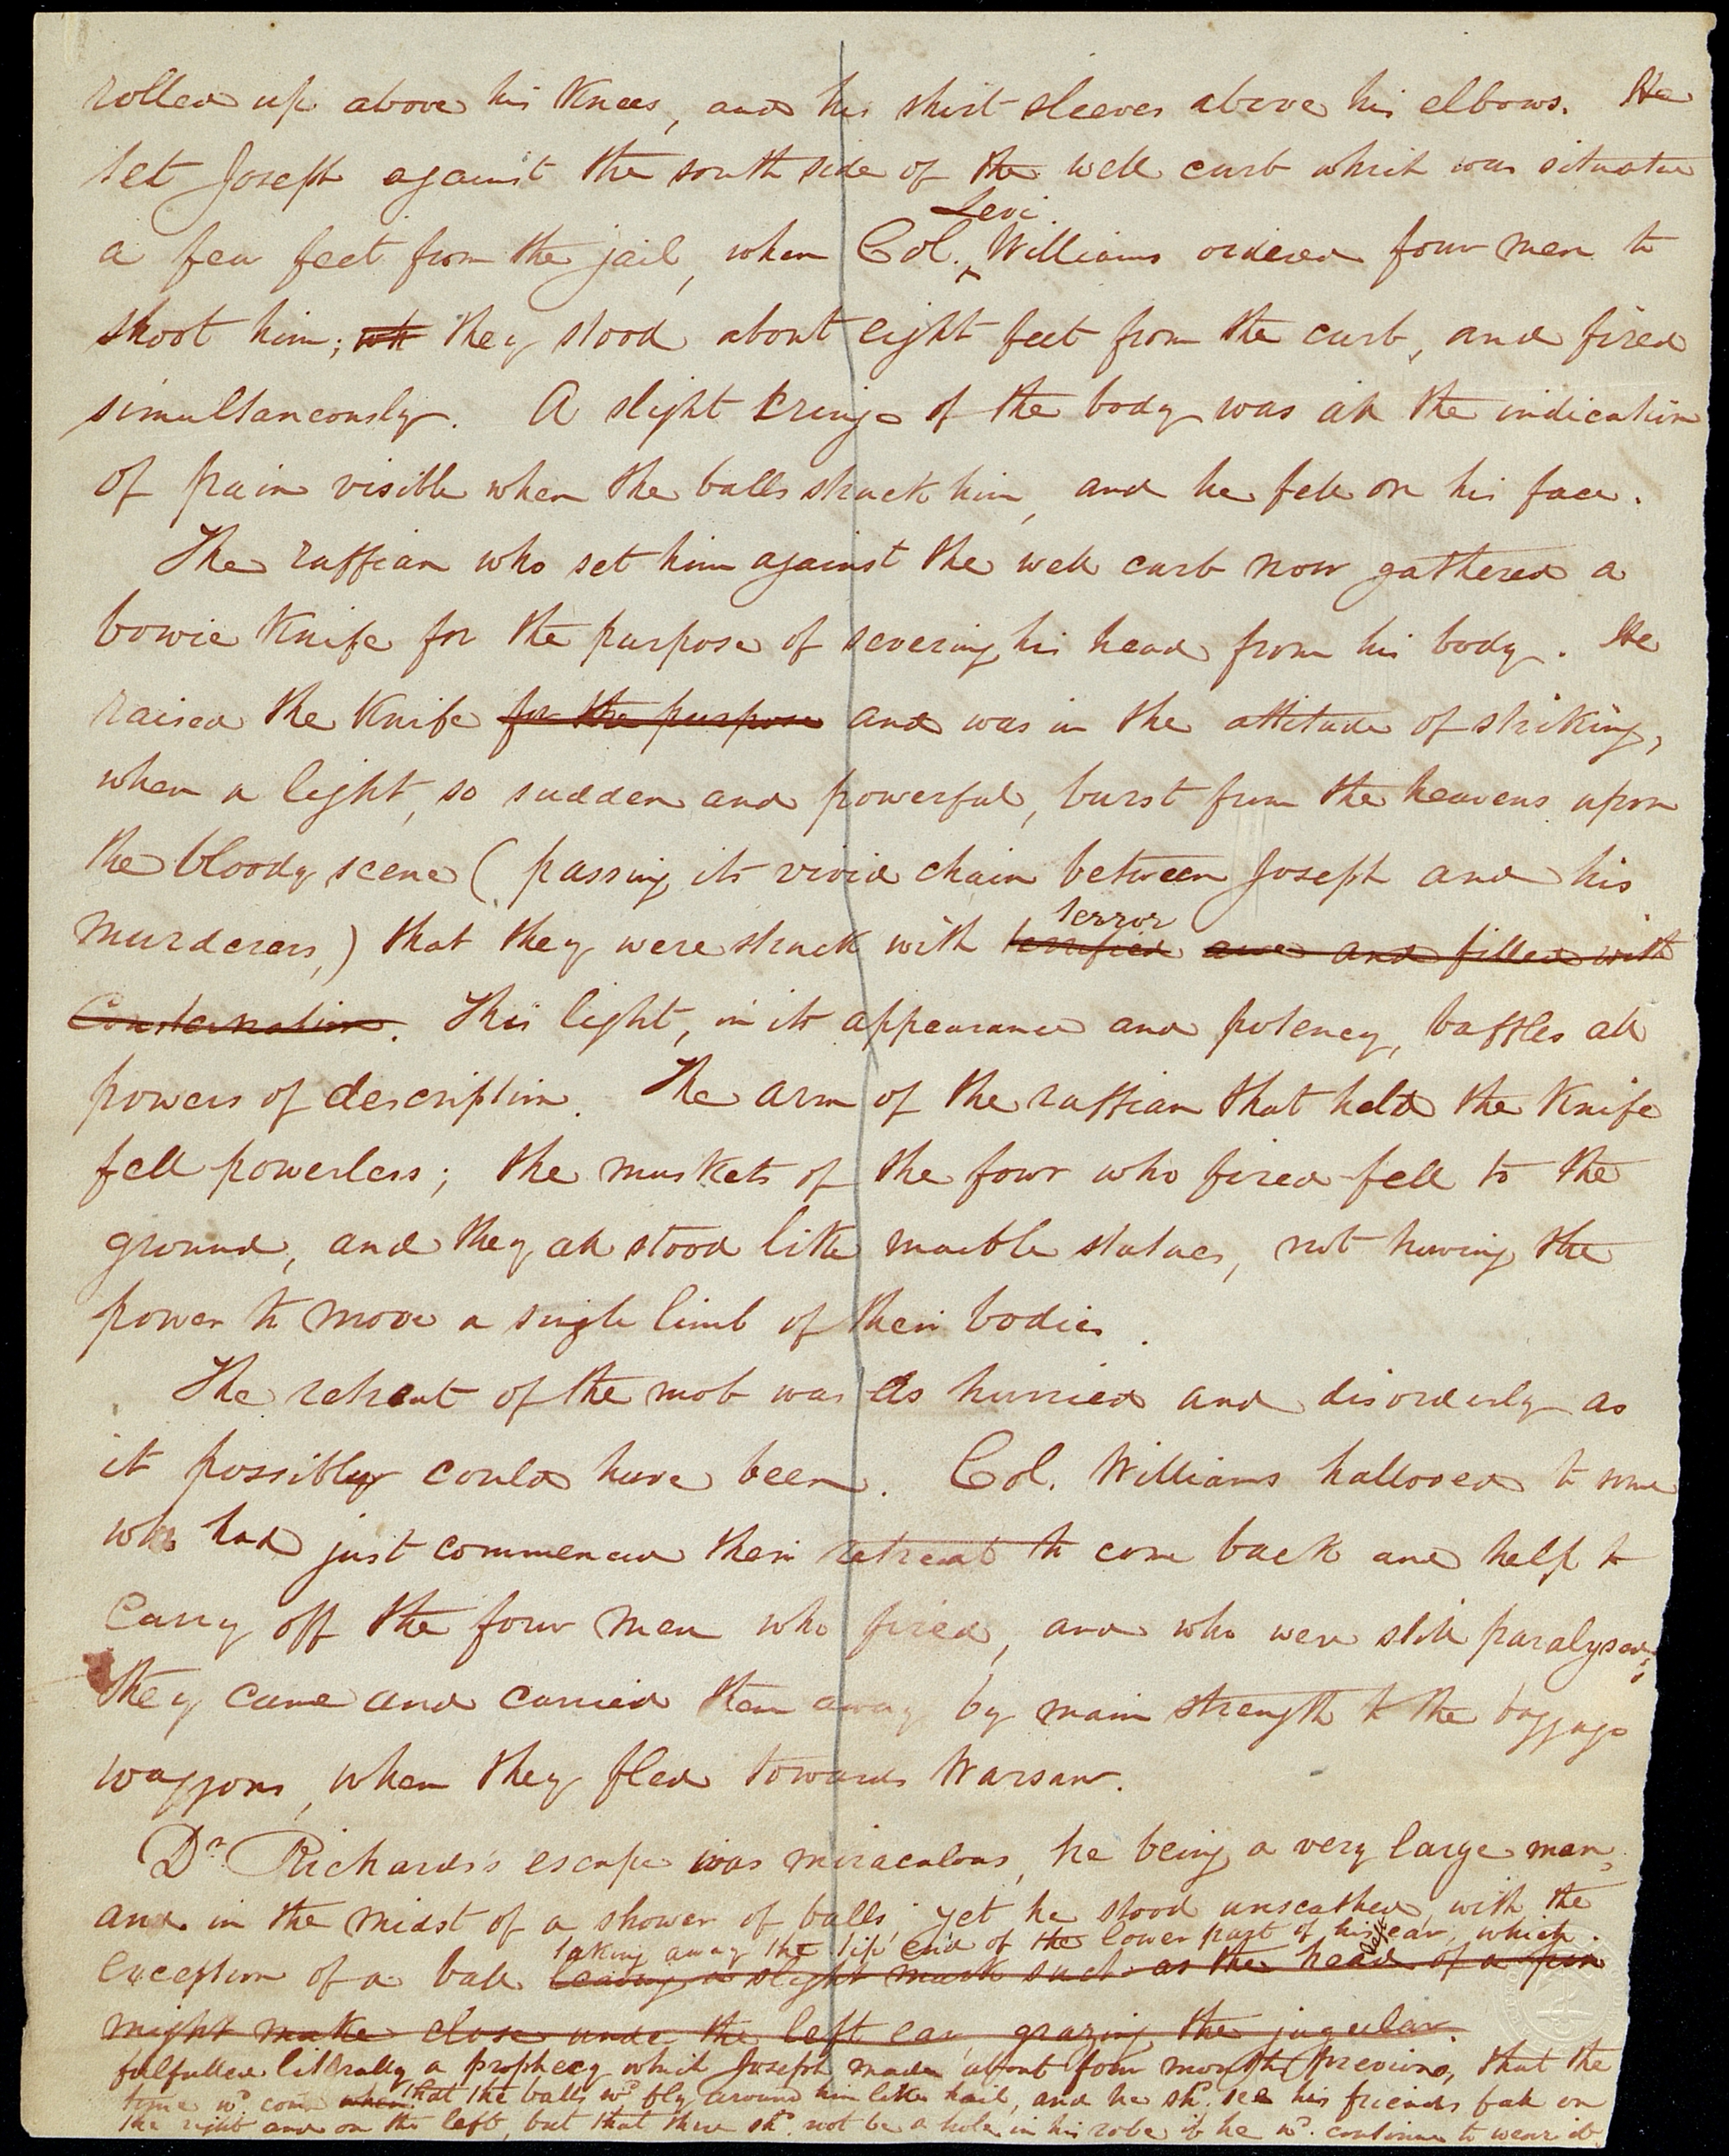 rolled up above his Knees, and his shirt sleeves above his elbows. He
set Joseph against the south side of the well curb which was situated
Levi
a few feet from the jail, when Col. ^ Williams ordered four men to
shoot him; wh they stood about eight feet from the curb, and fired
simultaneously. A slight cringe of the body was all the indication
of pain visible when the balls struck him, and he fell on his face.
The ruffian who set him against the well curb now gathered a
bowie Knife for the purpose of severing his head from his body. He
raised the Knife for the purpose and was in the attitude of striking,
when a light, so sudden and powerful, burst from the heavens upon
the bloody scene (passing its vivid chain between Joseph and his
terror
murderers,) that they were struck with terrified awe and filled with
Consternation. This light, in its appearance and potency, baffles all
powers of description. The arm of the ruffian that held the Knife
fell powerless; the muskets of the four who fired fell to the
ground, and they all stood like marble statues, not having the
power to move a single limb of their bodies.
The retreat of the mob was as hurried and disorderly as
it possibly could have been. Col. Williams hallooed to some
who had just commenced their retreat to come back and help to
carry off the four men who fired, and who were still paralysed;
they came and carried them away by main strength to the baggage
waggons, when they fled towards Warsaw.
Dr. Richards's escape was miraculous, he being a very large man,
and in the midst of a shower of balls, yet he stood unscathed, with the
taking away the tip end of the lower part of his left ear, which
exception of a ball leaving a slight mark such as the head of a pin
might make close under the left ear, grazing the jugular.
fulfilled literally a prophecy which Joseph made about four months previous, that the
time wd. come when that the balls wd. fly around him like hail, and he shd. see his friends fall on
the right and on the left, but that there shd. not be a hole in his robe if he wd. continue to wear it